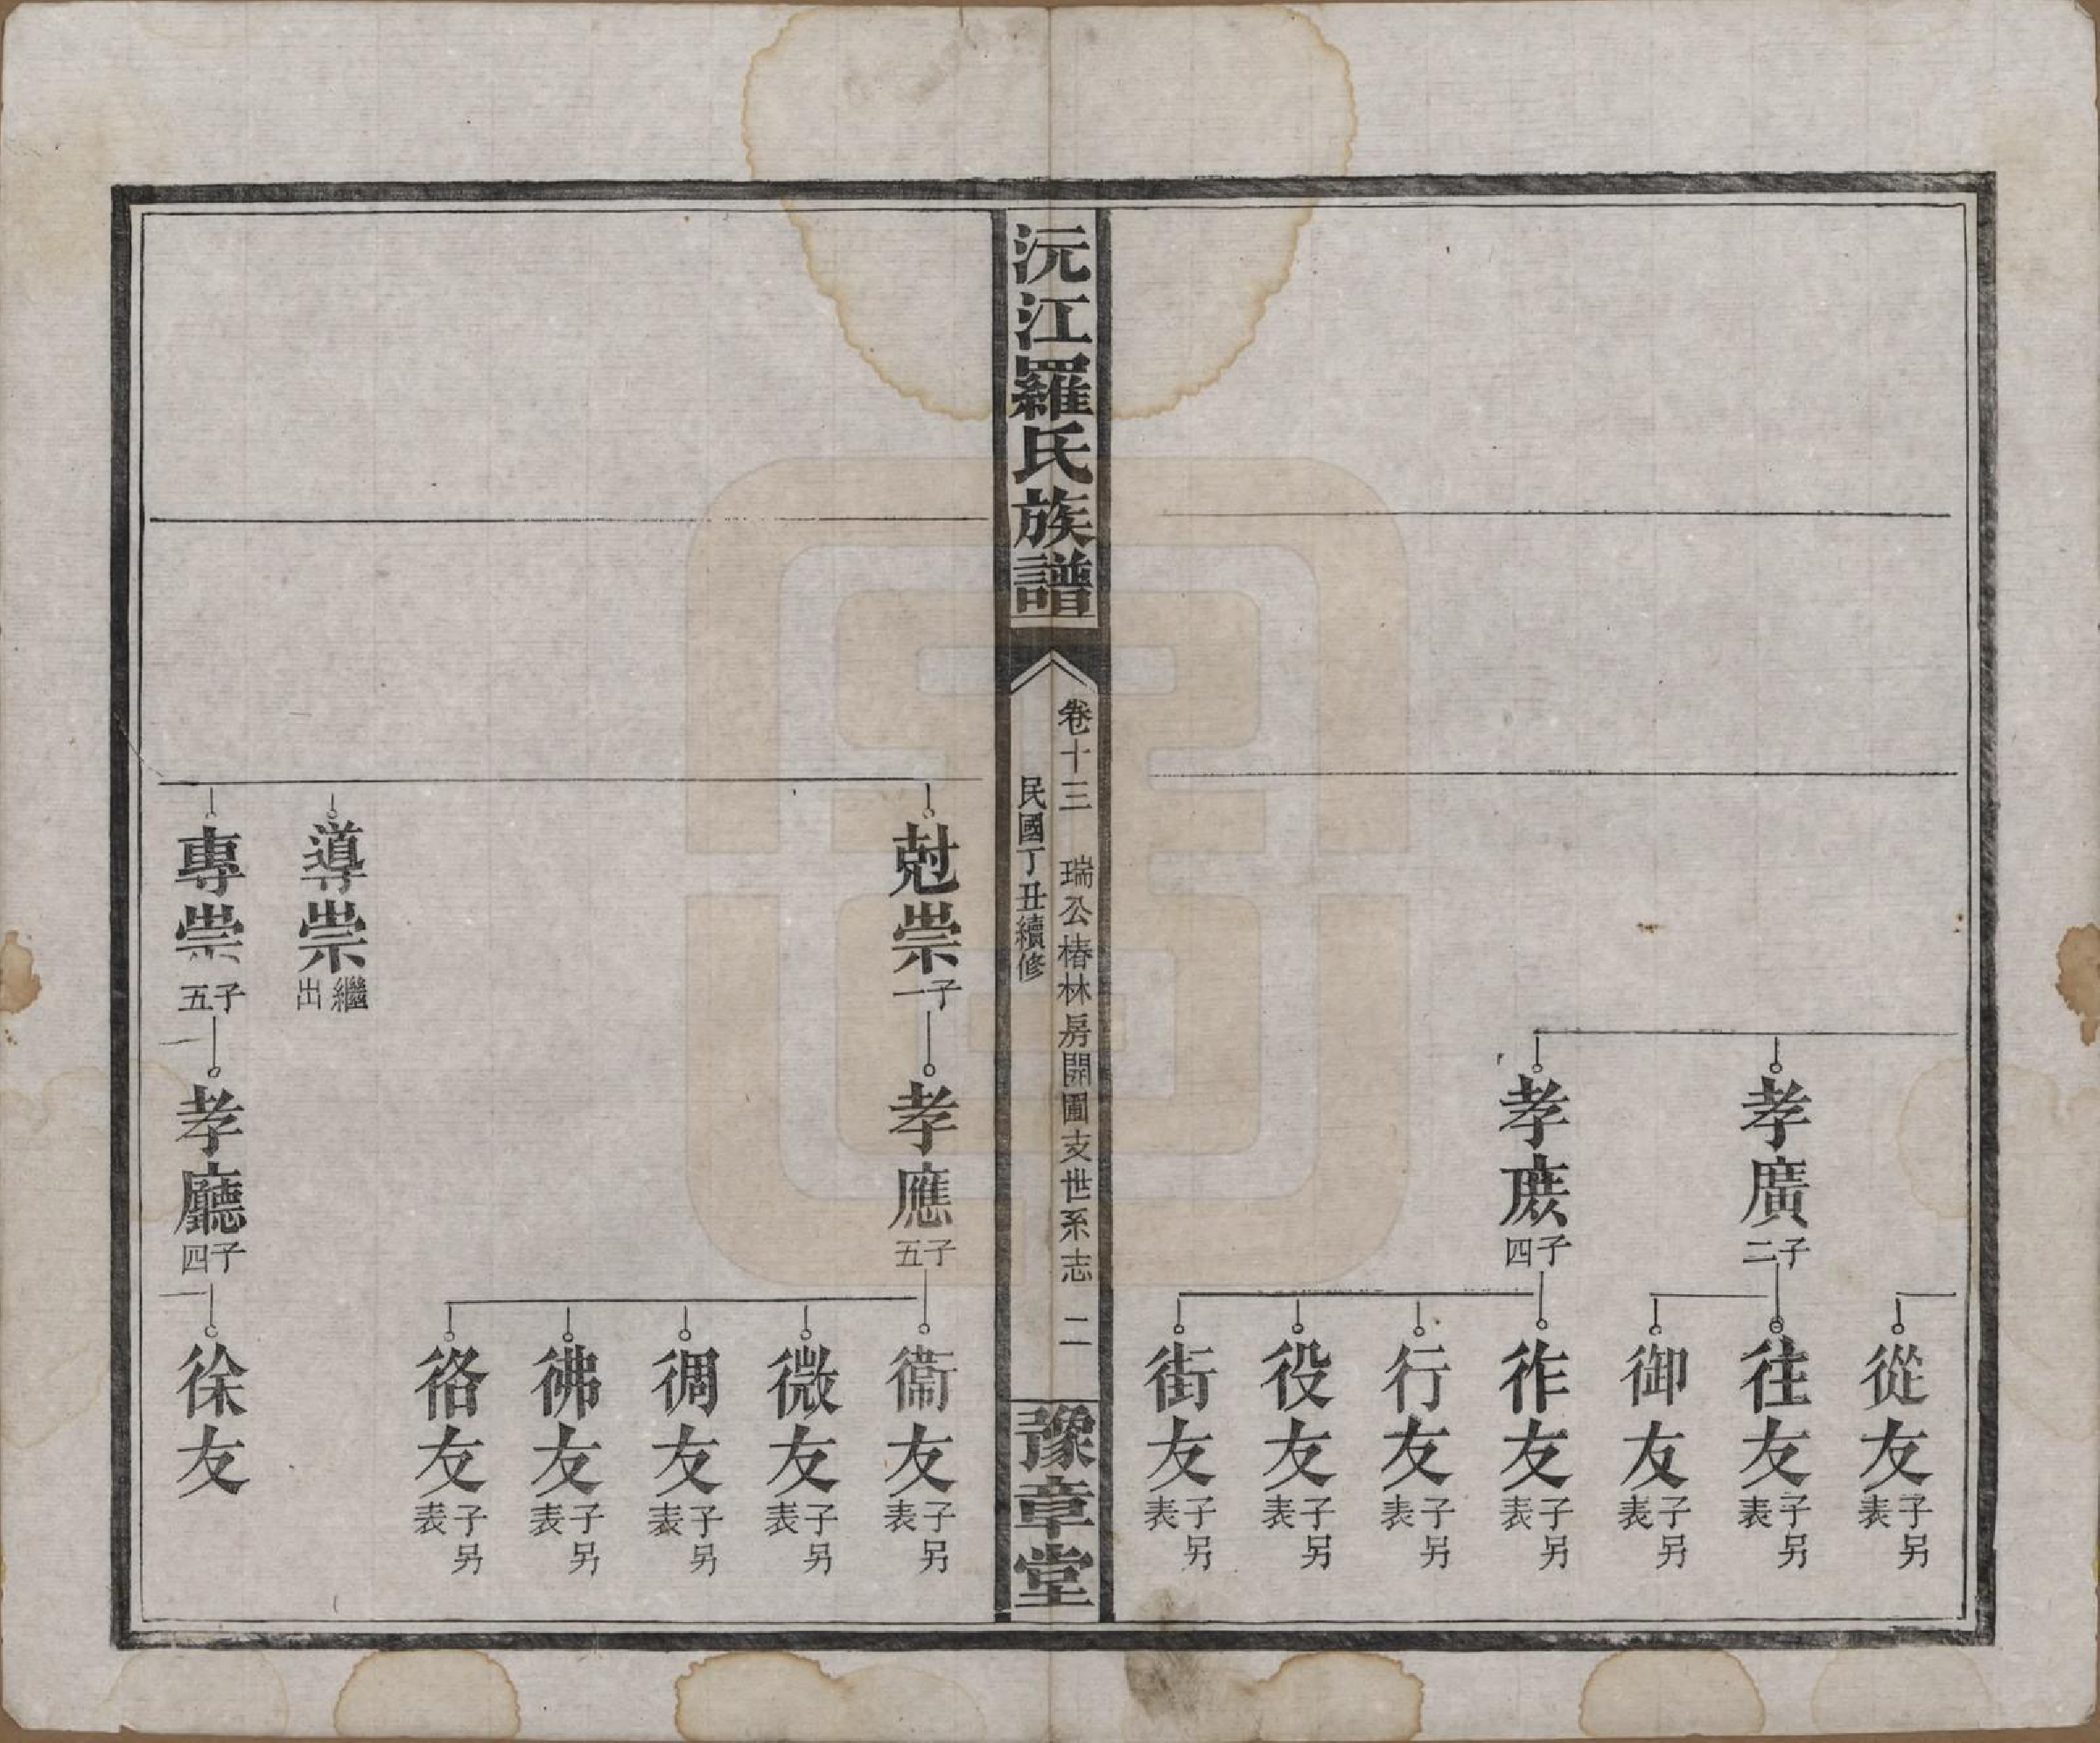 從友 子另表
孝廣 二子
往友 子另表
御友 子另表
孝㢘 四子
作友 子另表
行友 子另表
役友 子另表
街友 子另表
沅江羅氏族譜
卷十三 瑞公椿林房開圃支世系志 二
民國丁丑續修
豫章堂
尅崇 一子
孝應 五子
衞友 子另表
微友 子另表
徟友 子另表
彿友 子另表
㣟友 子另表
導崇 出繼
專崇 五子
孝廳 四子
徐友